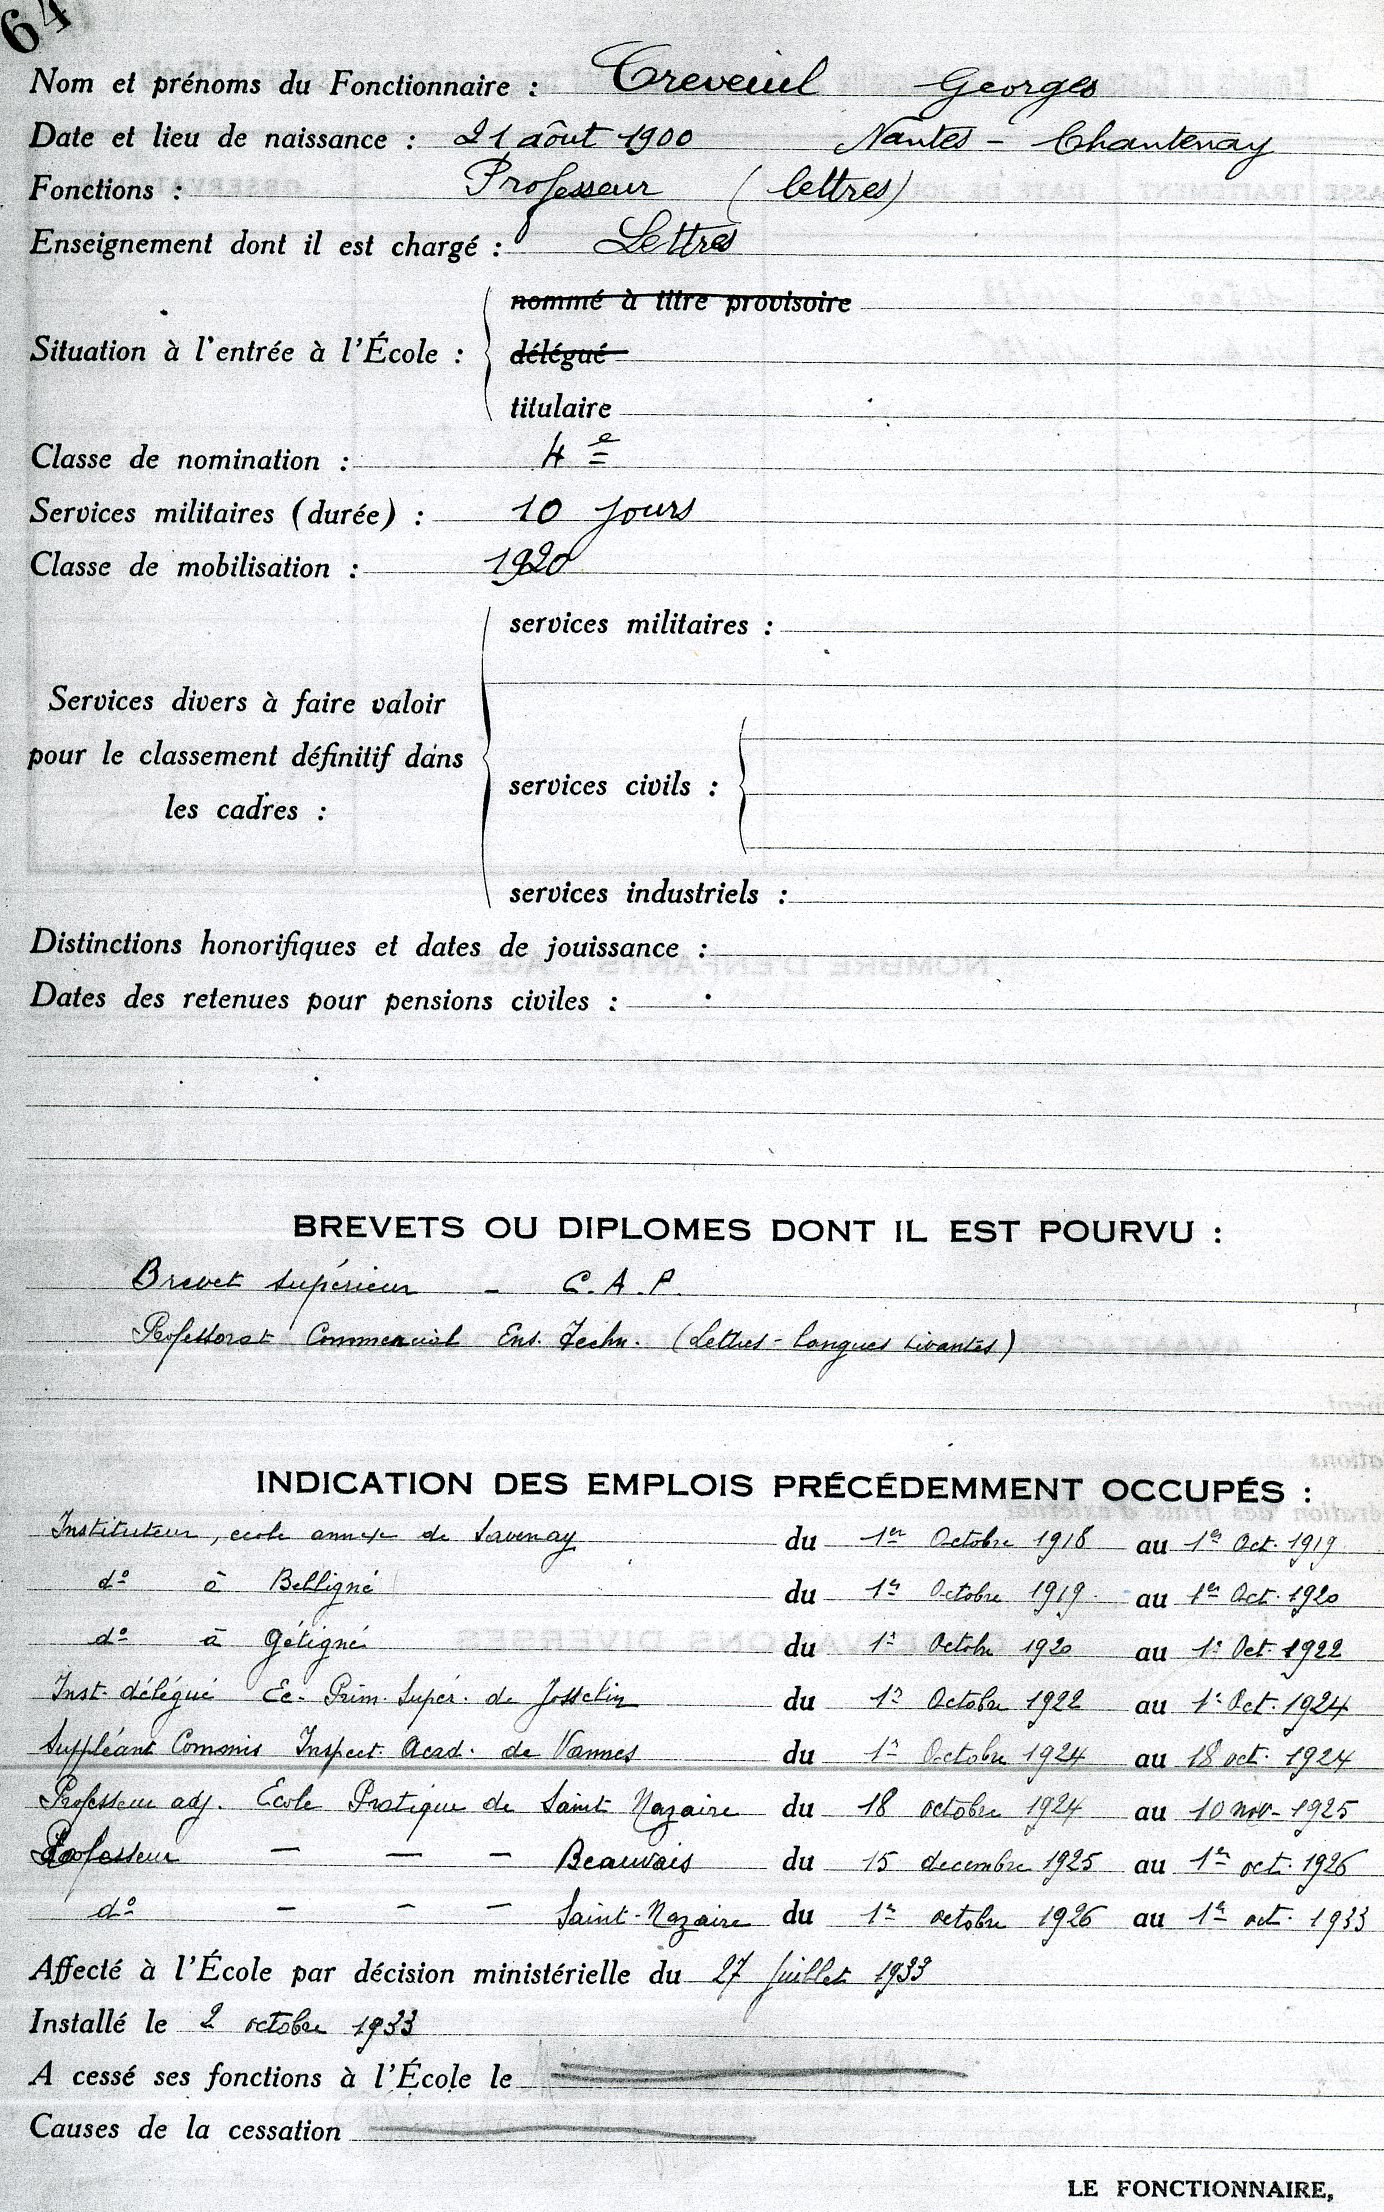 64
Nom et prénoms du Fonctionnaire : Treveul Georges
Date et lieu de naissance : 21 août 1900 Nantes - Chantenay
Fonctions : Professeur (lettres)
Enseignement dont il est chargé : Lettres
nommé à titre provisoire
Situation à l'entrée à l'École :
délégué
titulaire
Classe de nomination : 4e
Services militaires (durée) : 10 jours
Classe de mobilisation : 1920
services militaires :
Services divers à faire valoir
pour le classement définitif dans
services civils :
les cadres :
services industriels :
Distinctions honorifiques et dates de jouissance :
Dates des retenues pour pensions civiles :
BREVETS OU DIPLOMES DONT IL EST POURVU :
Brevet supérieur - C.A.P.
Professorat Commercial Ens. Techn. (Lettres - langues vivantes)
INDICATION DES EMPLOIS PRÉCÉDEMMENT OCCUPÉS :
Instituteur, école annexe de Savenay du 1er Octobre 1918 au 1er Oct. 1919
do à Belligné du 1er Octobre 1919 au 1er Oct. 1920
do à Gétigné du 1er Octobre 1920 au 1er Oct. 1922
Inst. délégué Ec. Prim. Supér. de Josselin du 1er Octobre 1922 au 1er Oct. 1924
Suppléant Commis Inspect. Acad. de Vannes du 1er Octobre 1924 au 18 oct. 1924
Professeur adj. Ecole Pratique de Saint Nazaire du 18 octobre 1924 au 10 nov - 1925
Professeur — — — Beauvais du 15 decembre 1925 au 1er oct. 1926
do — — — Saint-Nazaire du 1er octobre 1926 au 1er oct. 1933
Affecté à l'École par décision ministérielle du 27 Juillet 1933
Installé le 2 octobre 1933
A cessé ses fonctions à l'École le
Causes de la cessation
LE FONCTIONNAIRE,